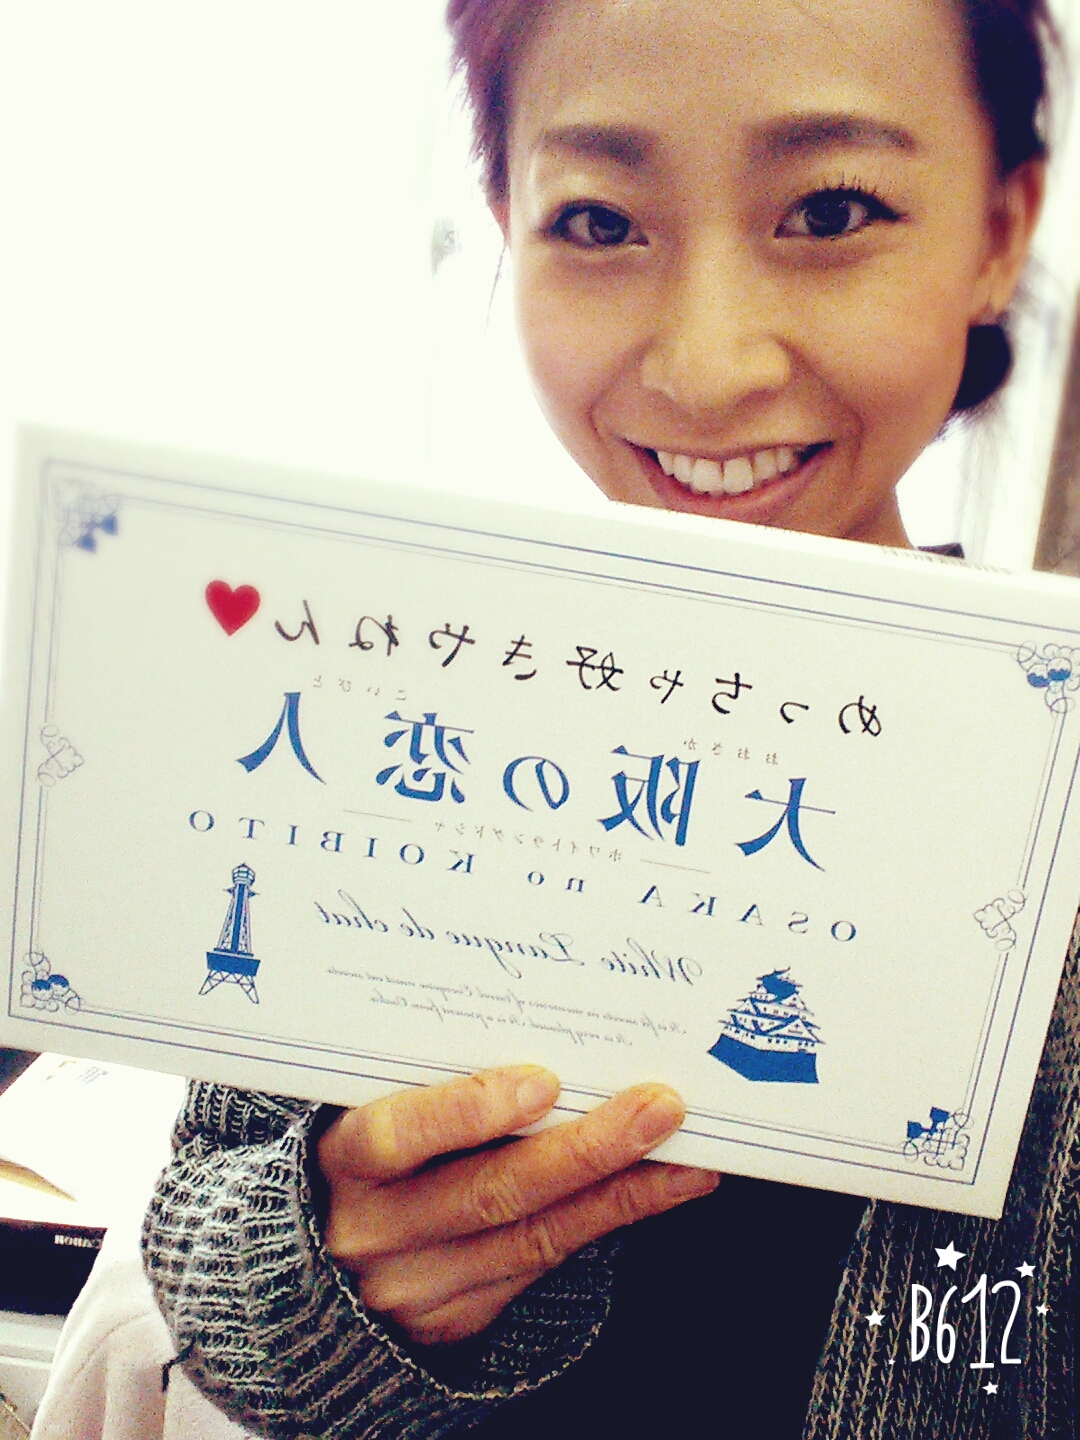 めっちゃ好きやねん
おおさか こいびと
大阪の恋人
ホワイトラングドシャ
OSAKA no KOIBITO
White Langue de chat
CANON
B612